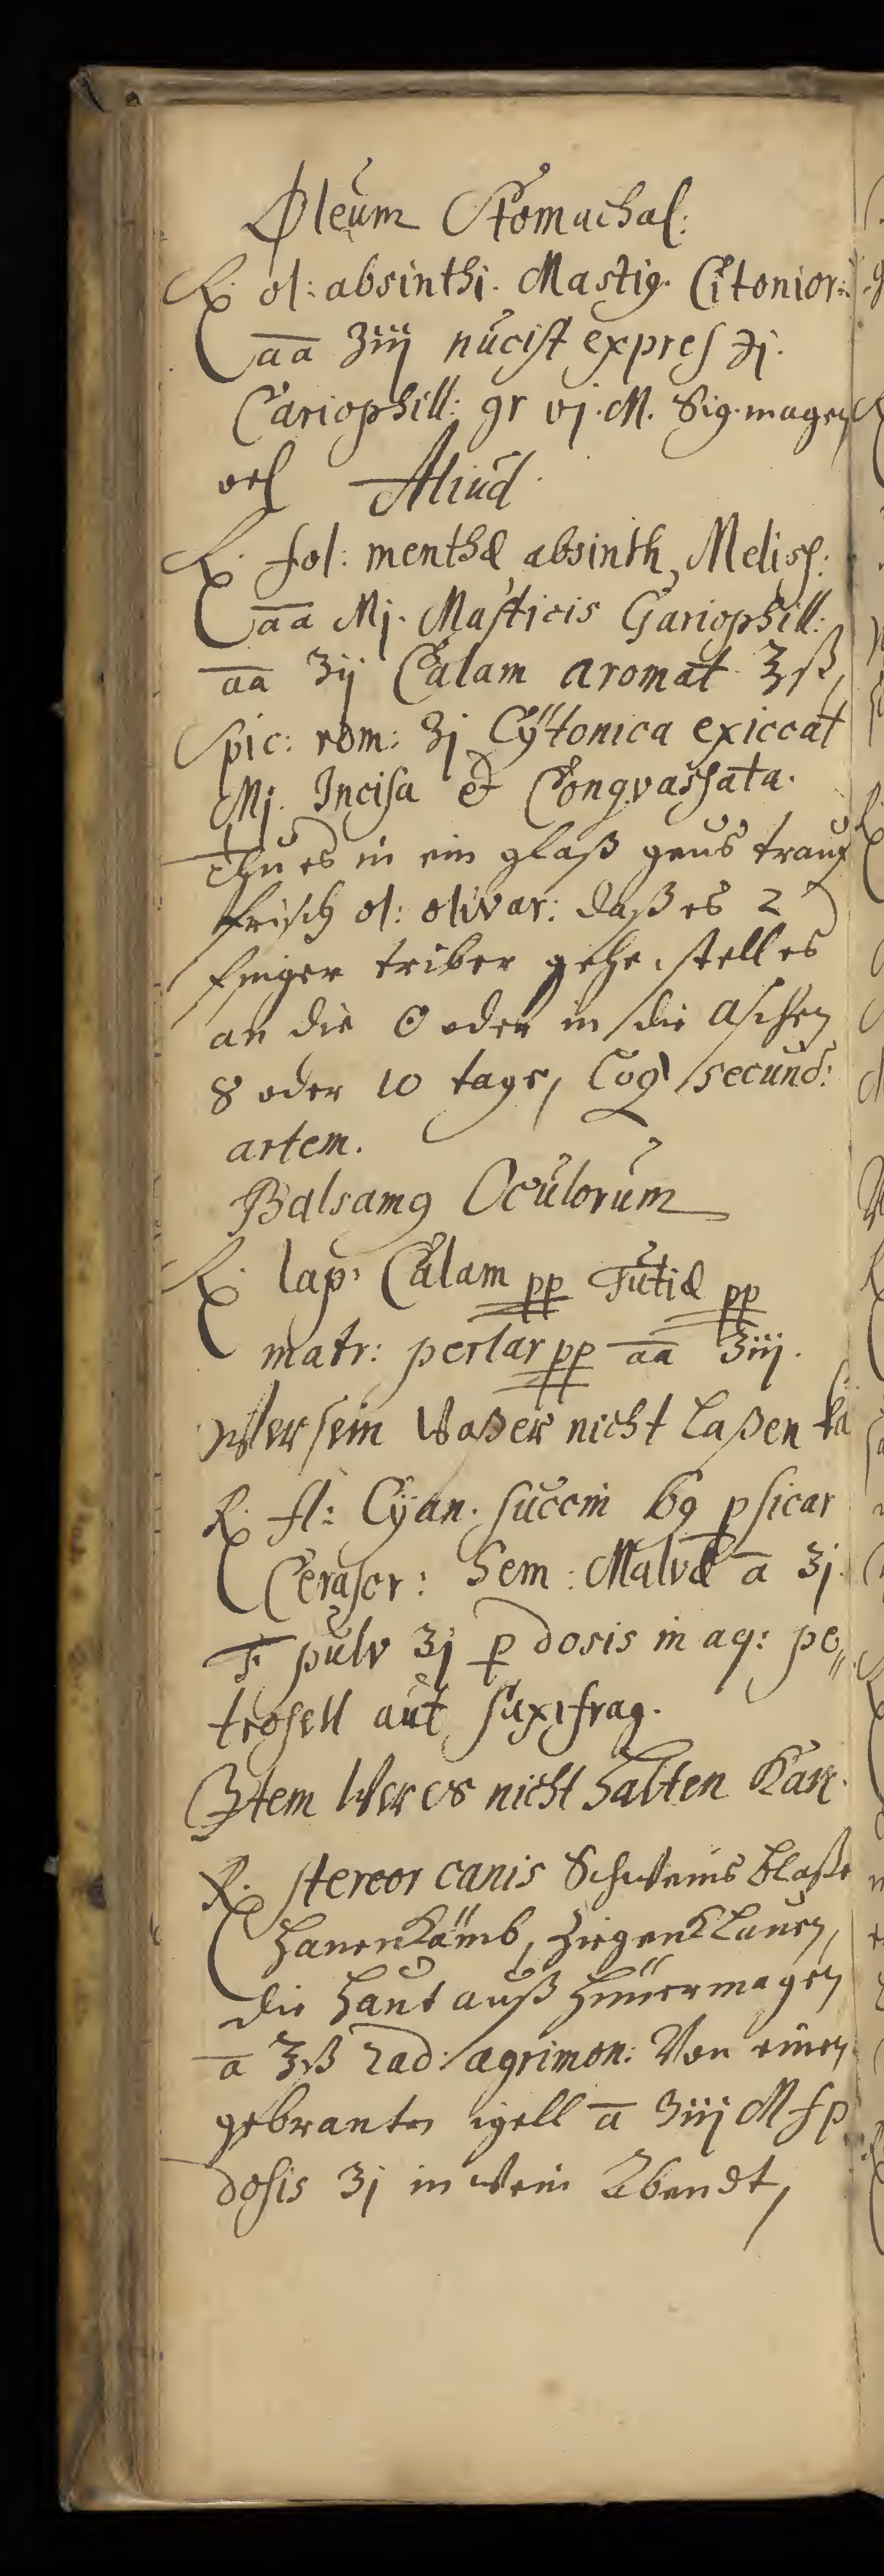 Oleum Stomachal:
℞. ol: absinthi. Mastig. Citonior:
aa ʒiij nucist expres ℈j.
Cariophill: gr vj. M. Sig. magen
oel Aliud.
℞. fol: menthæ absinth, Meliss:
aa Mj. Masticis Gariophill:
aa ʒij Calam aromat ℥ß,
Spic: rom: ʒj Cÿtonica exiccat
Mj. Incisa et Congvassata.
Thu es in ein glaß geus trauf
frisch ol: olivar: daß es 2
finger triber gehe, stell es
an die ☉ oder in die aschen
8 oder 10 tage, Coq secund:
artem.
Balsamꝰ Oculorum
℞. lap: Calam pp Tutiæ pp
matr: perlar pp aa ʒiij.
Wer sein Waßer nicht Laßen ka
℞. fl: Cÿan. succin bg psicar
Cerasor: Sem: Malvæ a ʒj.
F. pulv ʒj p dosis in aq: pe„
trosell aut saxifrag.
Item Wer es nicht halten Kan.
℞. stercor canis Schweins blaße
hanenkämb, ziegenklauen,
die haut auß hünermagen
a ℥ß rad: agrimon: Von einen
gebranten igell a ʒiij M f p
dosis ʒj in Wein Abendt,